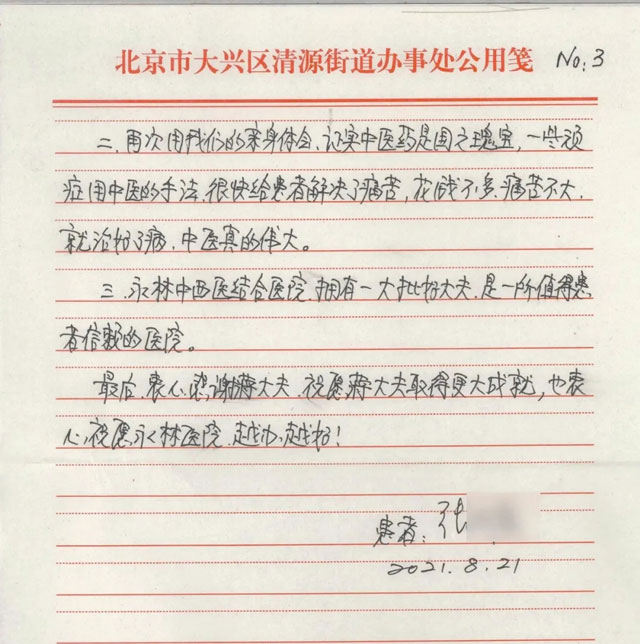 北京市大兴区清源街道办事处公用笺 No:3
二、再次用我们的亲身体会、证实中医药是国之瑰宝，一些顽
症用中医的手法、很快给患者解决了痛苦，花钱不多、痛苦不大、
就治好了病、中医真的伟大。
三、永林中西医结合医院、拥有一大批好大夫、是一所值得患
者信赖的医院。
最后、衷心感谢蒋大夫、祝愿蒋大夫取得更大成就，也衷
心祝愿永林医院、越办越好！
患者：张
2021.8.21